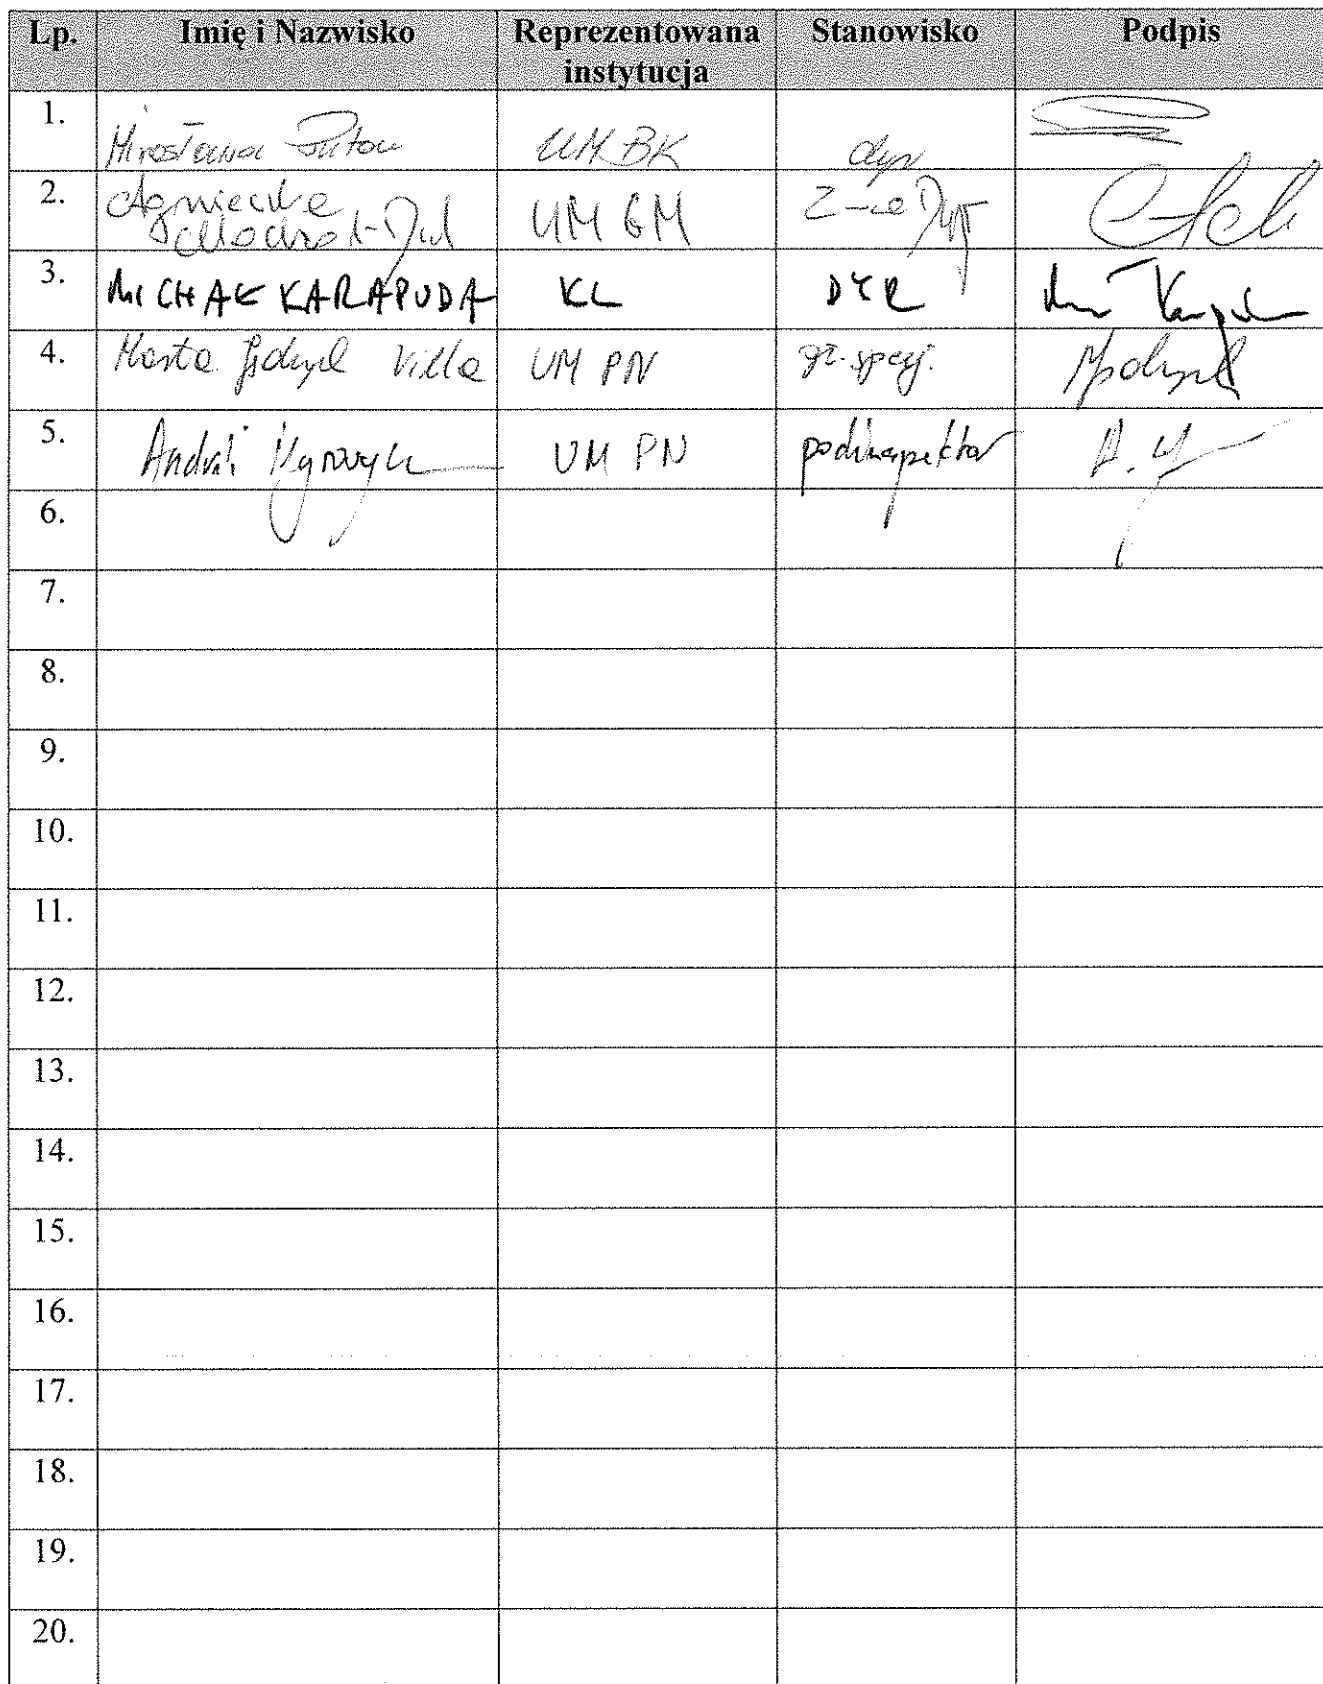 Lp. Imię i Nazwisko Reprezentowana instytucja Stanowisko Podpis
1. Mirosława UM BK dyr
2. Agnieszka UM GM Z-ca Dyr
3. MICHAŁ KARAPUDA KL DYR
4. Marta UM PN gł. specj.
5. Andrii UM PN podinspektor
6.
7.
8.
9.
10.
11.
12.
13.
14.
15.
16.
17.
18.
19.
20.